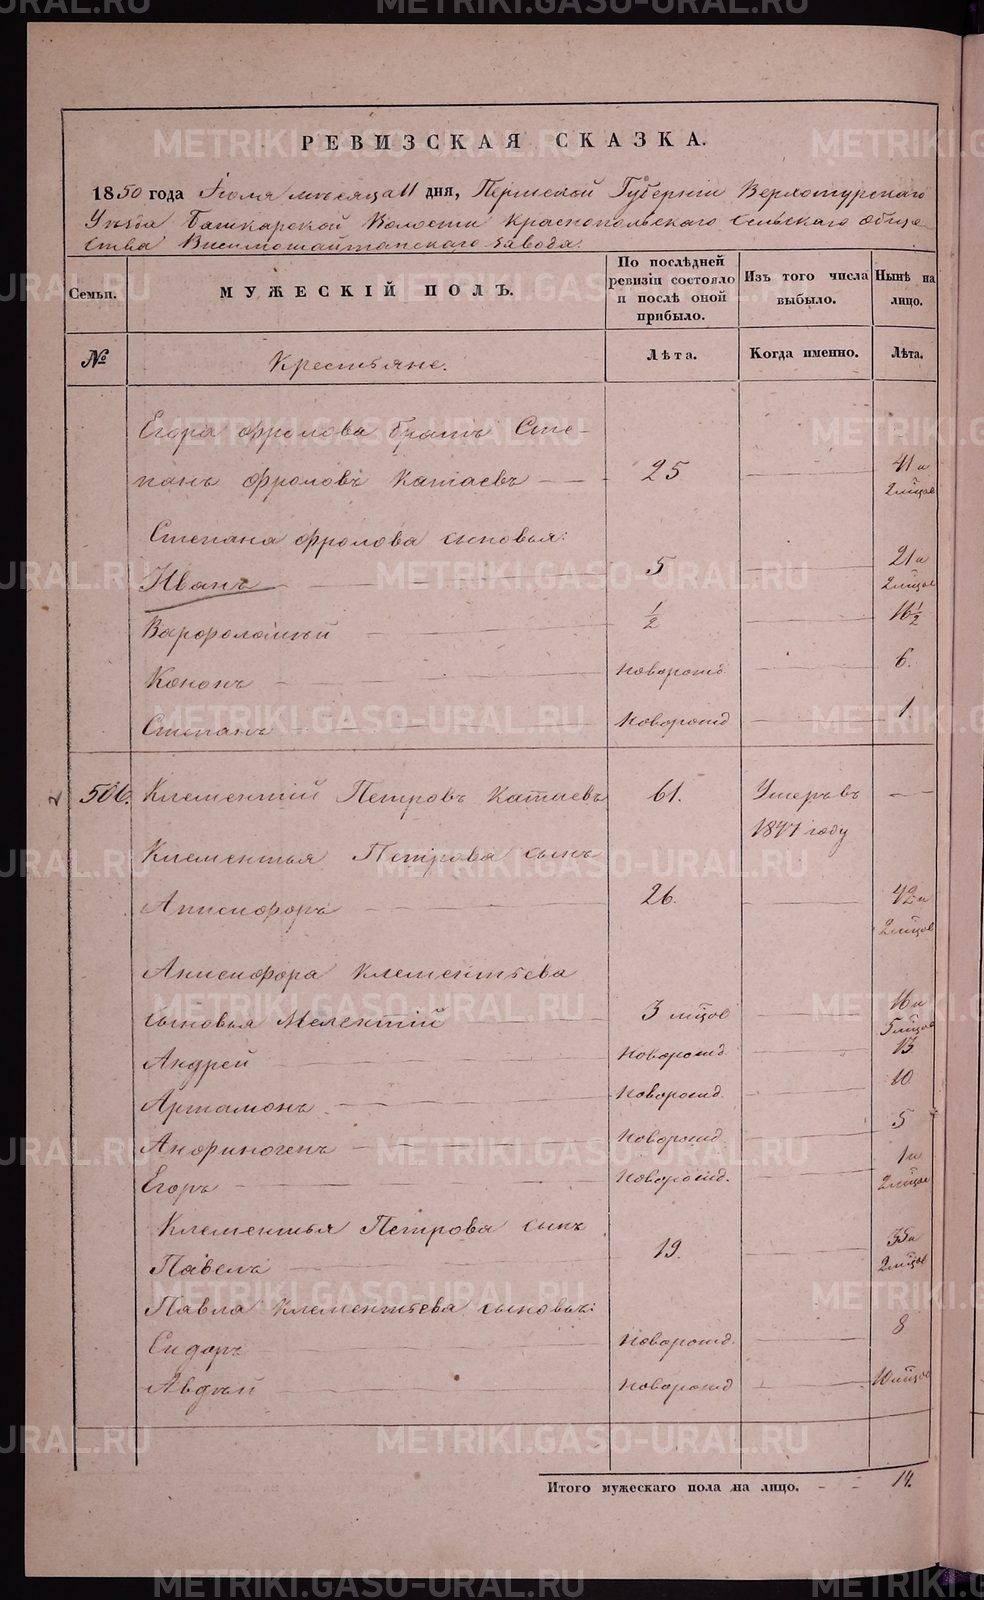 РЕВИЗСКАЯ СКАЗКА.
1850 года Июля мѣсяца 11 дня, Пермской Губерніи Верхотурскаго
Уѣзда Башкарской Волости Краснопольскаго Сельскаго Обще-
ства Висимошайтанскаго завода.
Семьи. МУЖЕСКІЙ ПОЛЪ. По послѣдней ревизіи состояло и послѣ оной прибыло. Изъ того числа выбыло. Нынѣ на лицо.
№ Крестьяне. Лѣта. Когда именно. Лѣта.
Егора Фролова братъ Сте-
панъ Фроловъ Катаевъ 25 41 и 2 мѣцов
Степана Фролова сыновья:
Иванъ 5 21 и 2 мѣцов
Варфоломѣй 1/2 16 1/2
Кононъ новорожд. 6.
Степанъ новорожд 1
2 506. Климентій Петровъ Катаевъ 61. Умеръ въ
1841 году
Климентья Петрова сынъ
Анисифоръ 26. 42 и 2 мѣцов
Анисифора Климентьева
сыновья Мелентій 3 мѣцов 16 и 5 мѣцов
Андрей новорожд. 13
Артамонъ новорожд. 10
Анфиногенъ новорожд 5
Егоръ новорожд. 1 и 2 мѣцов
Климентья Петрова сынъ
Павелъ 19. 35 и 2 мѣцов
Павла Климентьева сыновья:
Сидоръ новорожд. 8
Авдѣй новорожд 10 мѣцов
Итого мужескаго пола на лицо. 14.
METRIKI.GASO-URAL.RU